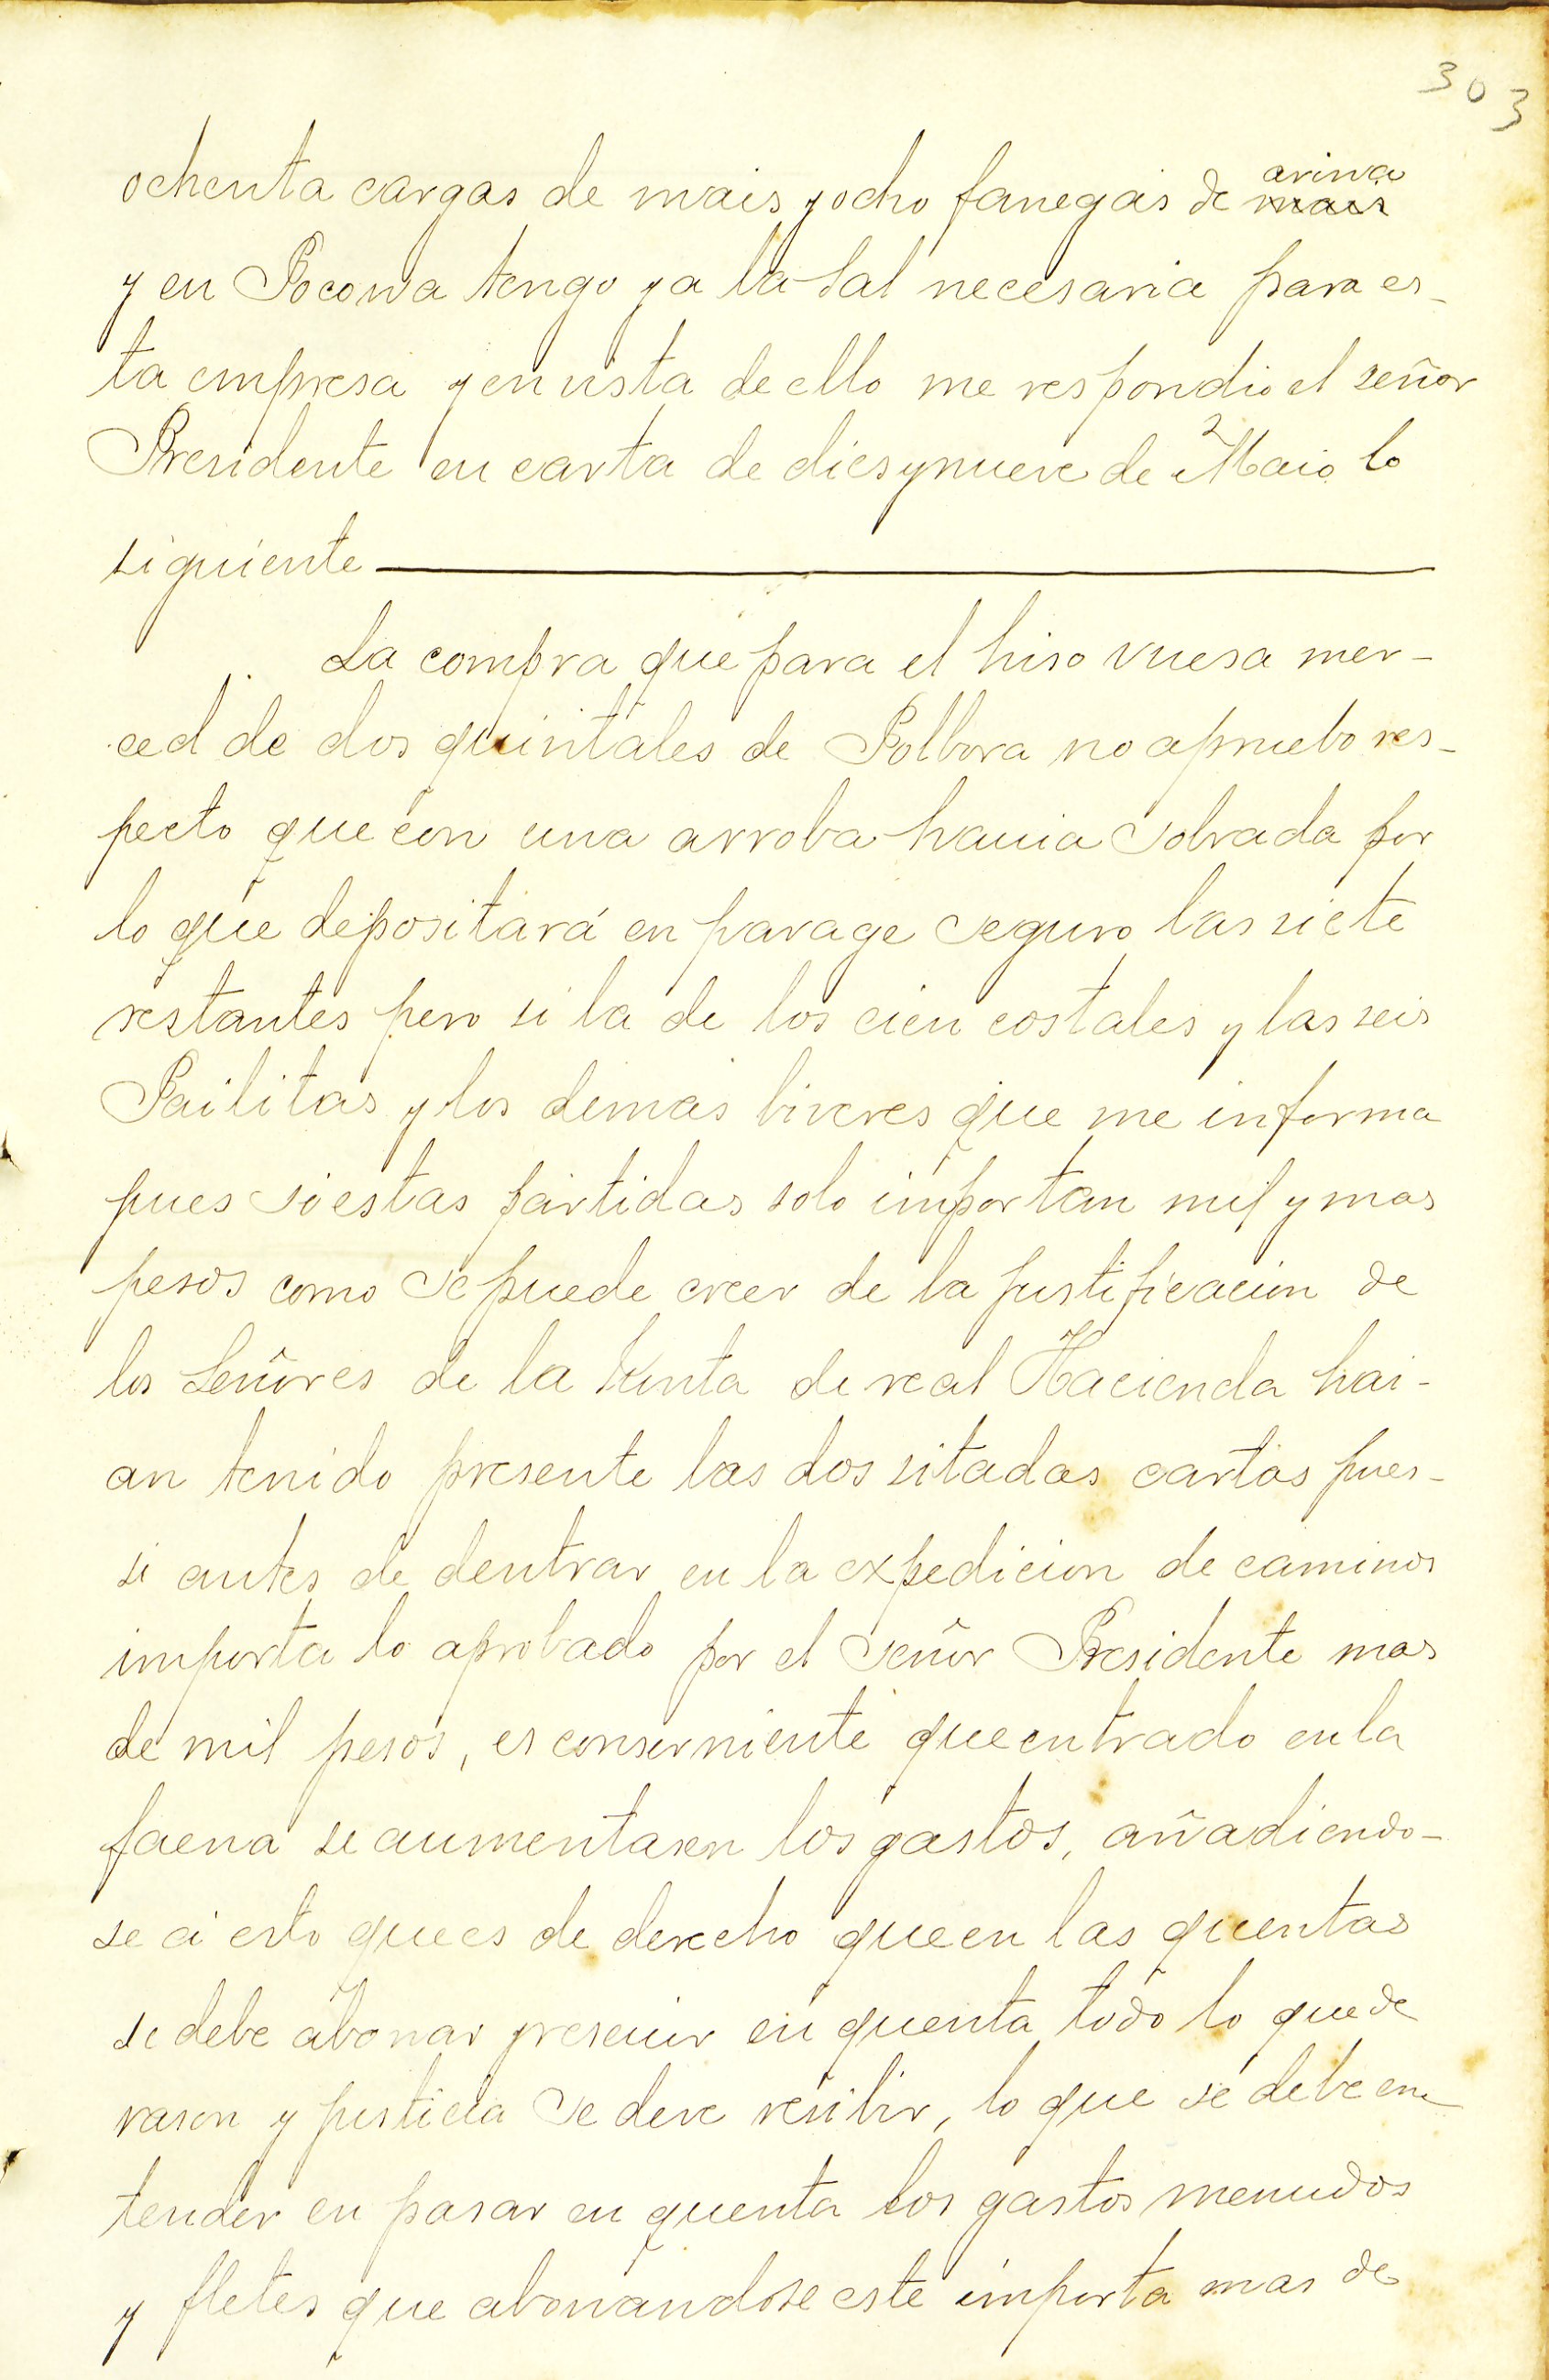 303
arina
ochenta cargas de mais y ocho fanegas de mais
y en Pocona tengo ya la sal necesaria para es-
ta empresa y en vista de ello me respondio el señor
Presidente en carta de dies y nueve de Maio lo
siguiente
La compra que para el hiso vuesa mer-
ced de dos quintales de Polbora no apruebo res-
pecto que con una arroba havia sobrada por
lo que depositará en parage seguro las siete
restantes pero si la de los cien costales y las seis
Pailitas y los demas biveres que me informa
pues si estas partidas solo importan mil y mas
pesos como se puede creer de la justificacion de
los Señores de la Junta de real Hacienda hai-
an tenido presente las dos sitadas cartas pues-
si antes de dentrar en la expedicion de caminos
importa lo aprobado por el señor Presidente mas
de mil pesos, es conserniente que entrado en la
faena se aumentasen los gastos, añadiendo-
se a esto que es de derecho que en las quentas
se debe abonar y reseuir en quenta todo lo que de
rason y justicia se deve resibir, lo que se debe en-
tender en pasar en quenta los gastos menudos
y fletes que abonandose este importa mas de